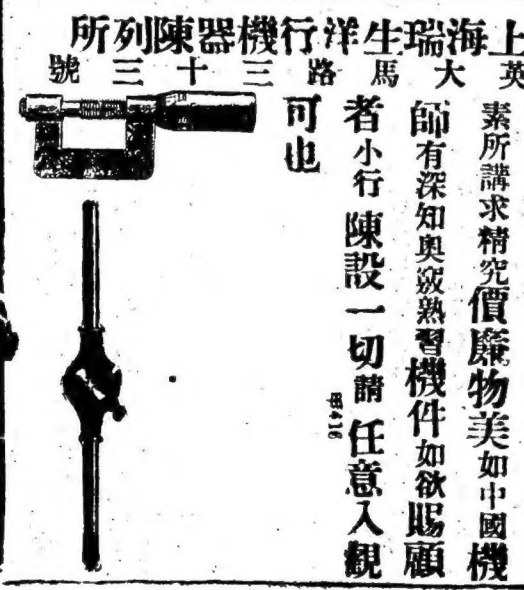 上海瑞生洋行機器陳列所
英大馬路三十三號
素所講求精究價廉物美如中國機
師有深知奥竅熟習機件如欲賜顧
者小行陳設一切請任意入觀
可也
甲416